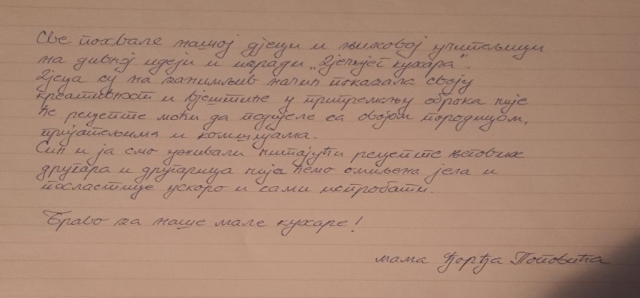 Све похвале нашој дјеци и њиховој учитељици
на дивној идеји и изради „Дјечијег кухара".
Дјеца су на занимљив начин показала своју
креативност и вјештине у припремању оброка чије
ће рецепте моћи да подијеле са својом породицом,
пријатељима и комшијама.
Син и ја смо уживали читајући рецепте његових
другара и другарица чија ћемо омиљена јела и
посластице ускоро и сами испробати.
Браво за наше мале кухаре!
мама Ђорђа Поповића